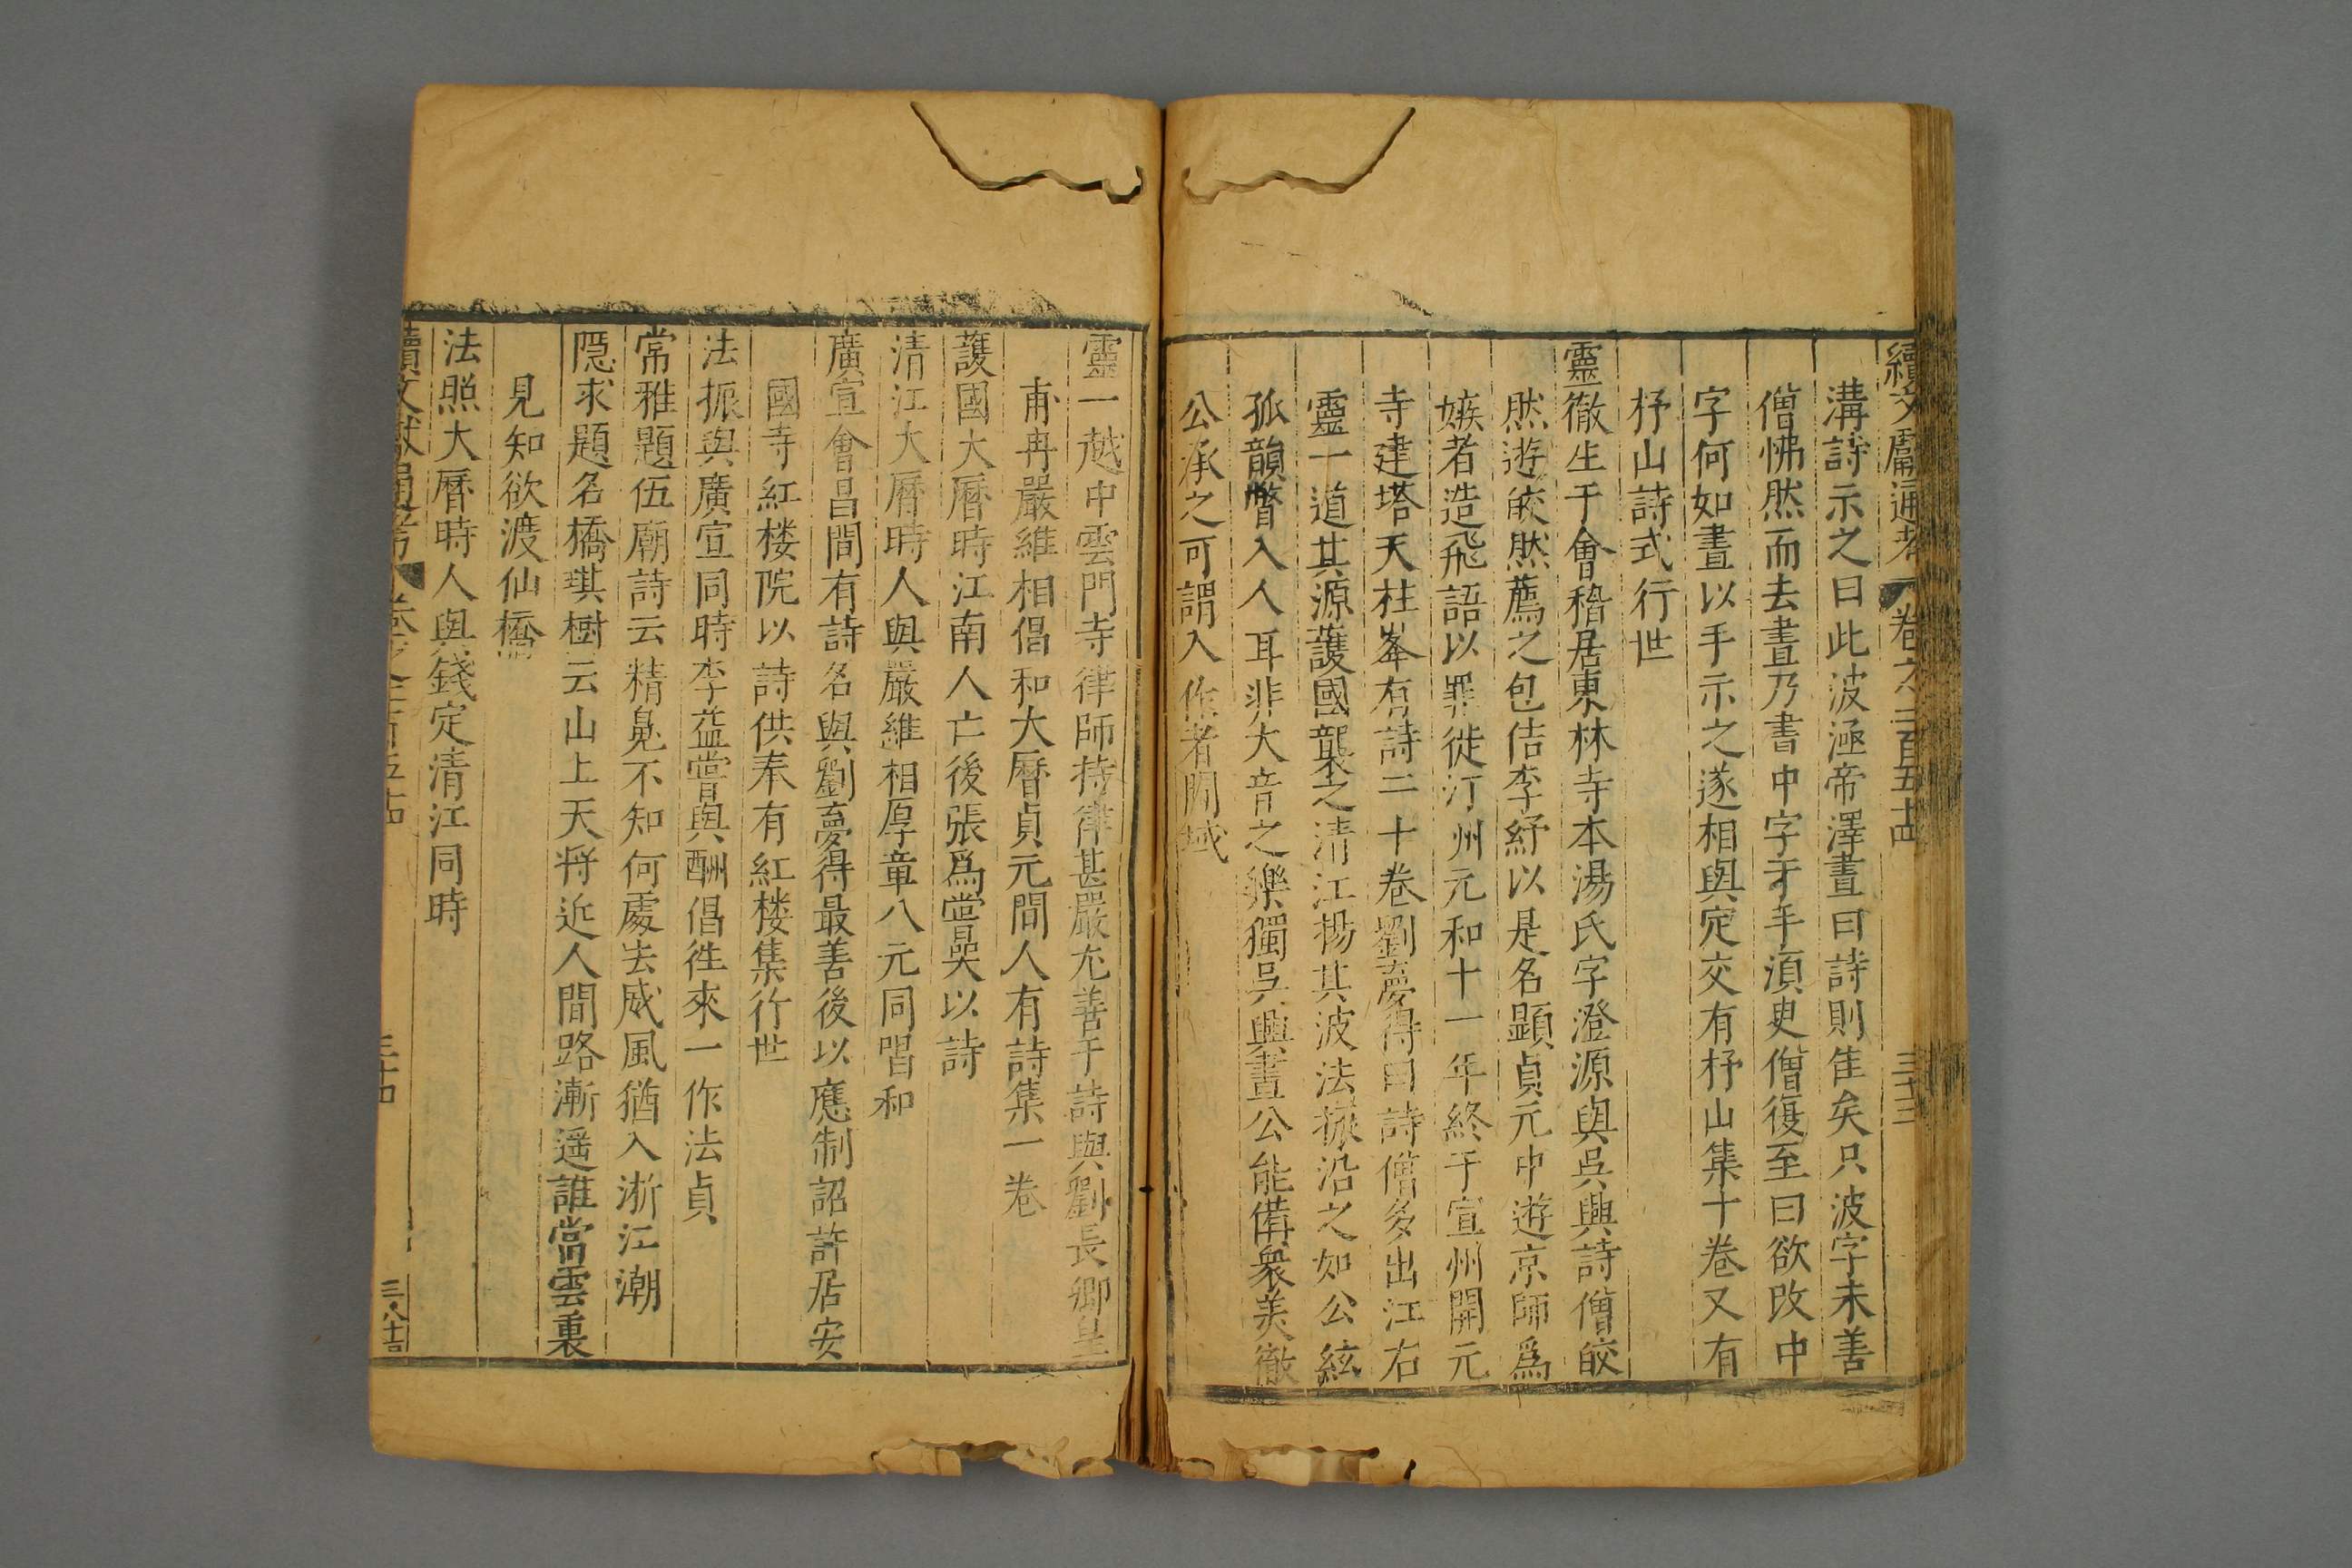 續文獻通考 卷之二百五十四 三十三
溝詩示之曰此波涵帝澤晝曰詩則隹矣只波字未善
僧怫然而去晝乃書中字于手湏臾僧復至曰欲改中
字何如晝以手示之遂相與定交有杼山集十卷又有
杼山詩式行世
靈徹生于會稽居東林寺本湯氏字澄源與吳興詩僧皎
然遊皎然薦之包佶李紓以是名顕貞元中遊京師爲
嫉者造飛語以罪徙汀州元和十一年終于宣州開元
寺建塔天柱峯有詩二十卷劉夢得曰詩僧多出江右
靈一道其源護國襲之清江揚其波法振沿之如公絃
孤韻瞥入人耳非大音之樂獨吳興晝公能備衆美徹
公承之可謂入作者閫域
靈一越中雲門寺律師持律甚嚴尤善于詩與劉長卿皇
甫冉嚴維相倡和大曆貞元間人有詩集一卷
護國大曆時江南人亡後張爲嘗哭以詩
清江大曆時人與嚴維相厚章八元同唱和
廣宣會昌間有詩名與劉夢得最善後以應制詔許居安
國寺紅楼院以詩供奉有紅楼集行世
法振與廣宣同時李益嘗與酬倡徃來一作法貞
常雅題伍廟詩云精䰟不知何處去威風猶入浙江潮
隠求題名橋琪樹云山上天将近人間路漸遥誰當雲裏
見知欲渡仙橋
法照大曆時人與錢定清江同時
續文獻通考 卷之二百五十四 三十四